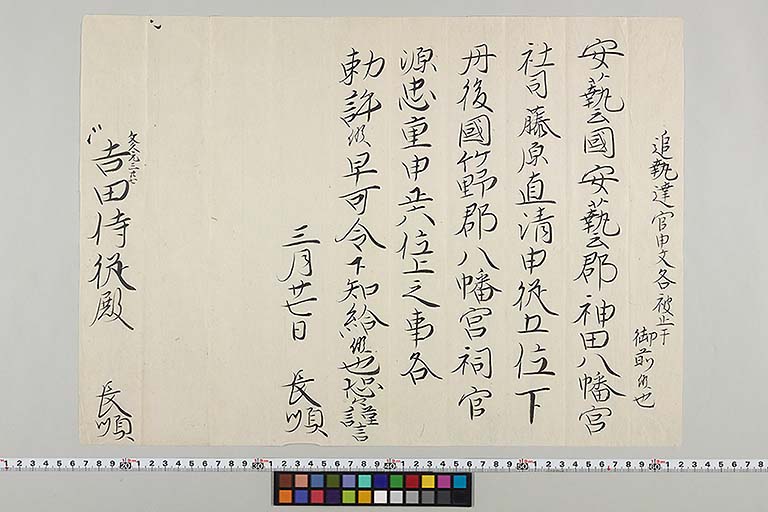 追執達官申文各被止于
御前候也
安藝國安藝郡神田八幡宮
社司藤原直清申従五位下
丹後國竹野郡八幡宮祠官
源忠重申正六位上之事各
勅許候早可令下知給候也恐々謹言
三月廿七日 長順
文久元三廿七
吉田侍従殿 長順